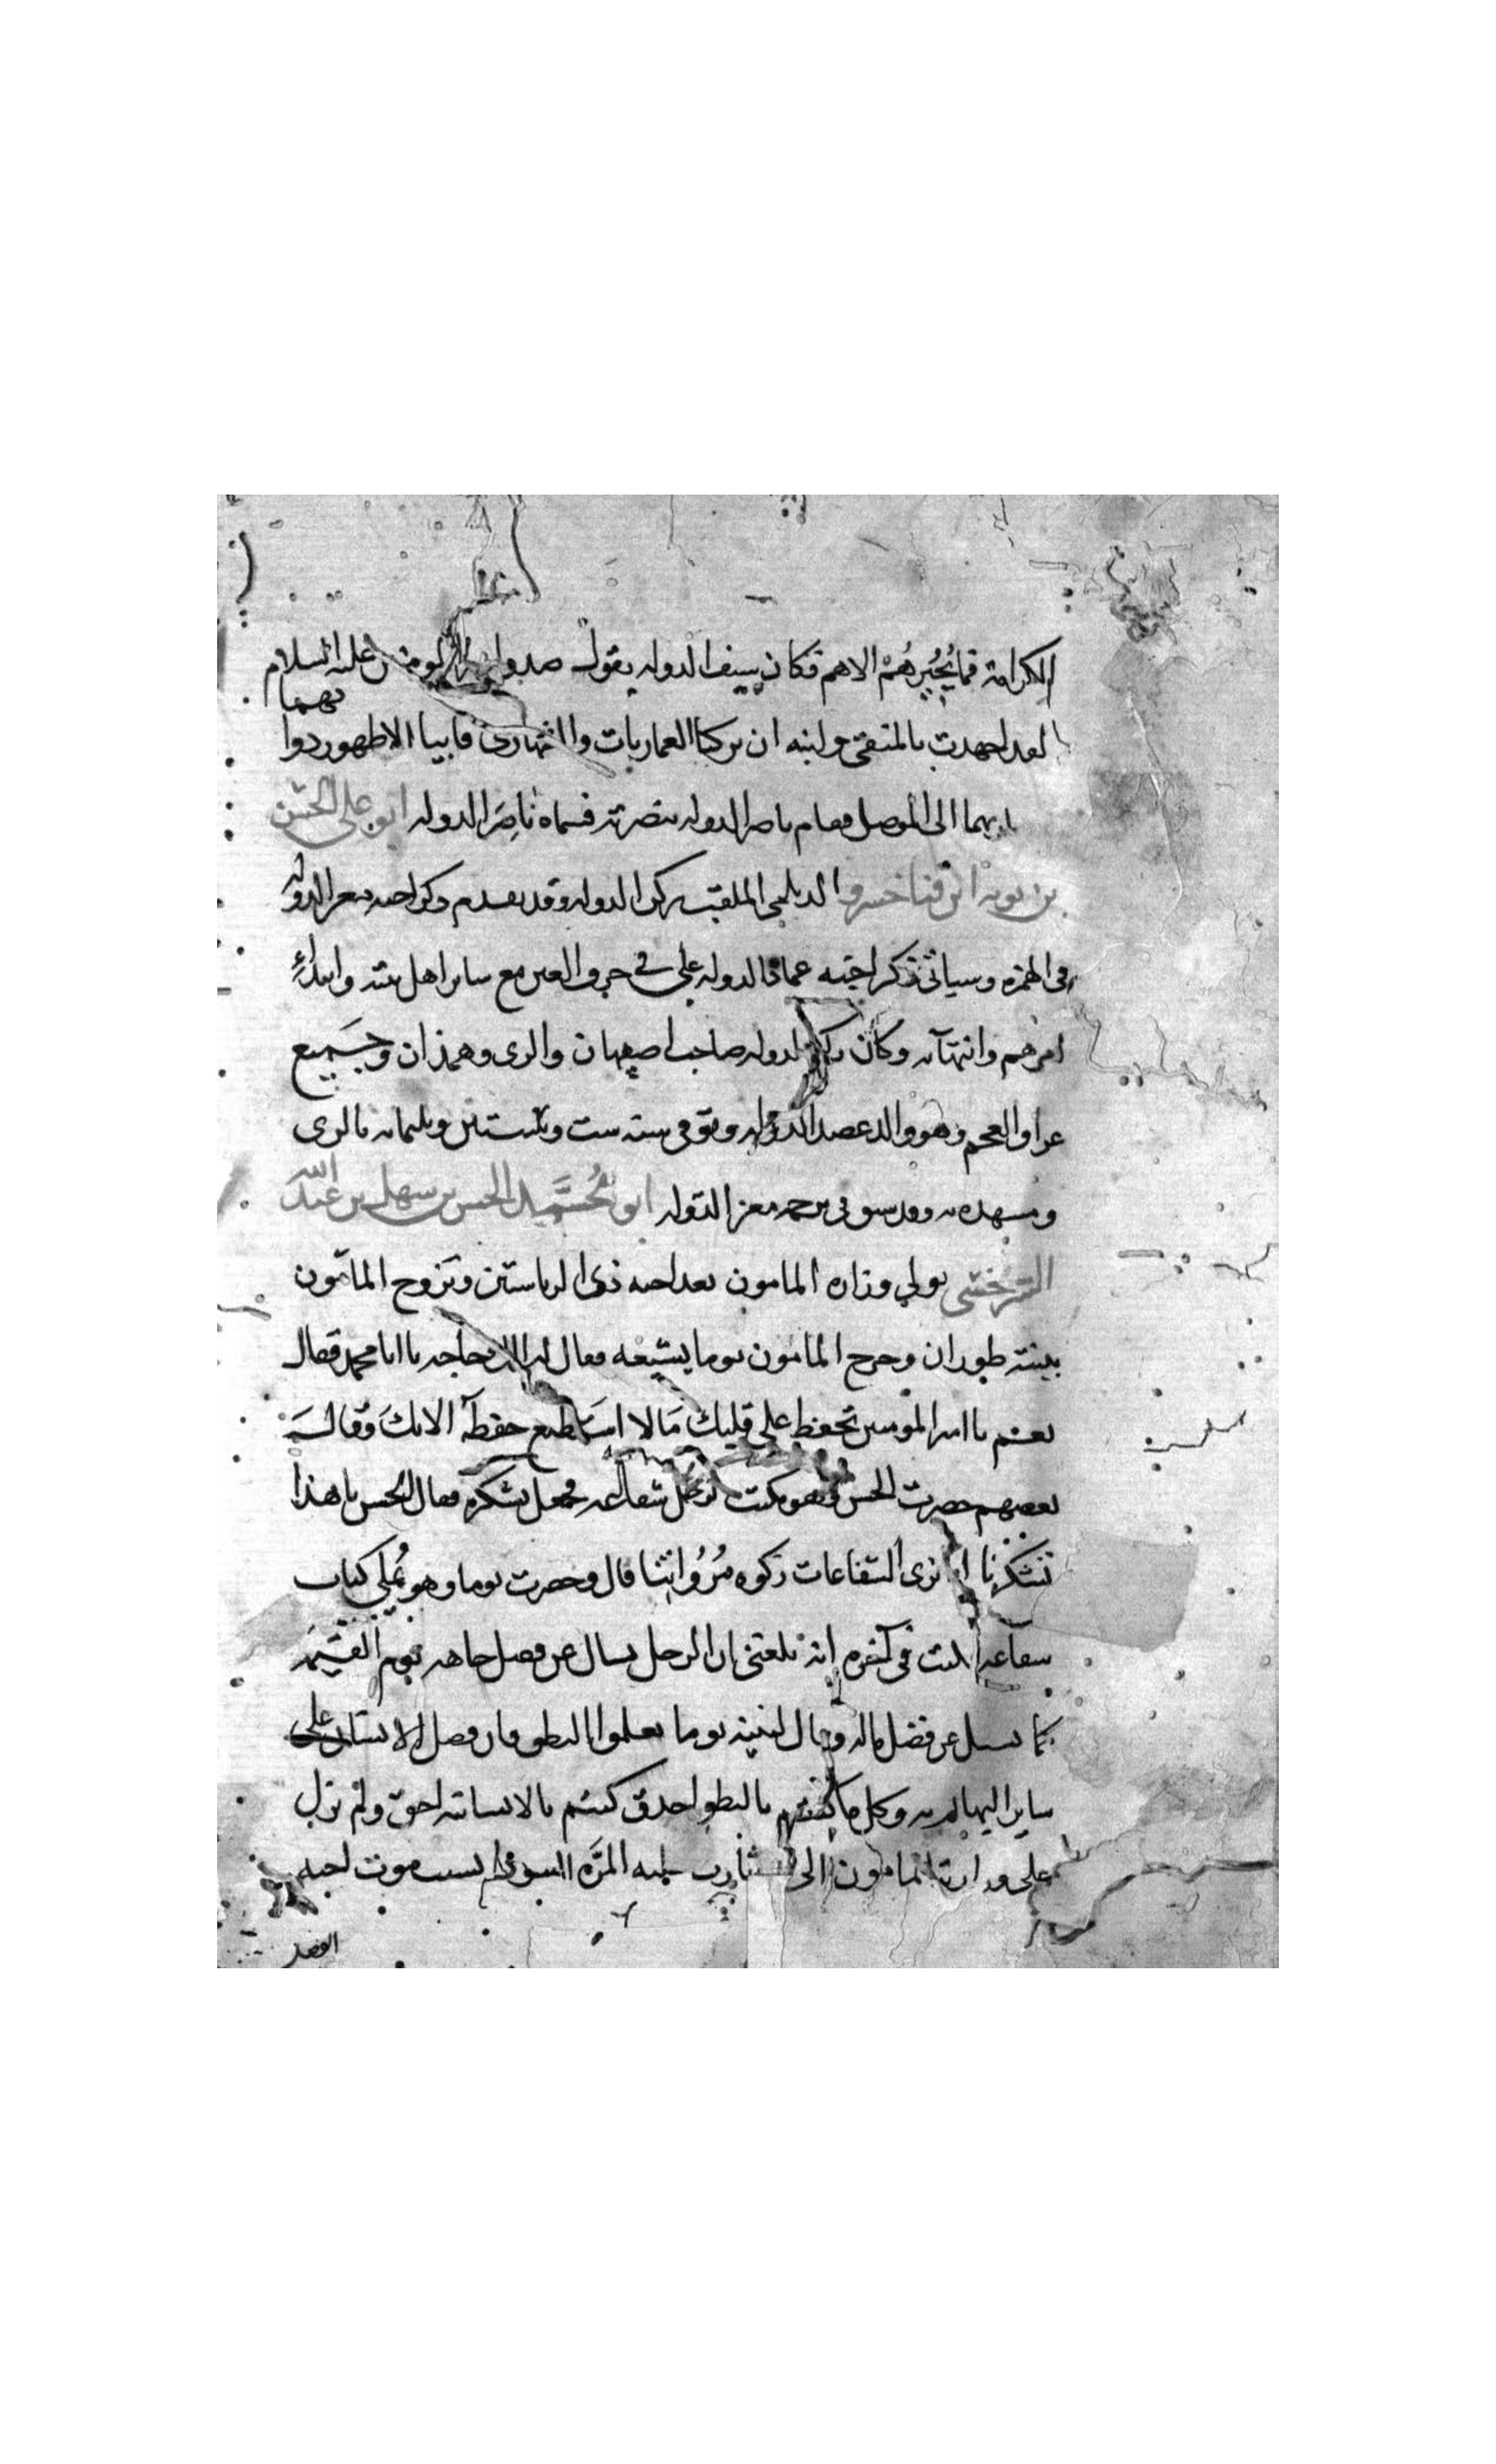 الكرامة فما يُجيرهم الا هم فكان سيف الدوله يقول صدق امير المومنين عليه السلام
لقد اجهدت بالمتقي وابنه ان يركبا العماريات والشهاري فابيا الا ظهور دوابهما
بهما الى الموصل فقام ناصر الدوله بنصرته فسماه ناصر الدوله ابو علي الحسن
بن بويه ابن فناخسرو الديلمي الملقب ركن الدوله وقد تقدم ذكر اخيه معز الدوله
في الهمزه وسياتي ذكر اخيه عماد الدوله علي في حرف العين مع ساير اهل بيته وابتداءِ
امرهم وانتهآيه وكان ركن الدوله صاحب اصبهان والري وهمذان وجميع
عراق العجم وهو والد عضد الدوله وتوفي سنه ست وستين وثلثمايه بالري
ومشهده به وقد سبق في ترجمه معز الدوله ابو مُحمَّد الحسن بن سهل بن عبد الله
السرخسي تولي وزاره المامون بعد اخيه ذي الرياستين وتزوج المامون
ببنته بوران وخرج المامون يوما يشيعه فقال له الك حاجه يا ابا محمد فقال
نعم يا امير المومنين تحفظ علي قلبك مَالا استطيع حفظه الا بك وقال
بعضهم حضرت الحسن وقد كتب لرجل شفاعه فجعل يشكره فقال الحسن يا هذا
تشكرنا انا نرى الشفاعات زكوه مُرُوَاتنا قال وحضرت يوما وهو يُملي كتاب
شفاعه فكتب في آخره انه بلغني ان الرجل يسال عن فضل جاهه يوم القيمه
كما يسال عن فضل ماله وقال لبنيه يوما تعلموا النطق فان فضل الانسان على
ساير البهايم به وكلما كنتم بالنطق احذق كنتم بالانسانيه احق ولم يزل
على وزارة المامون الى ان ثارت عليه المرّه السودا بسبب موت اخيه
الفضل